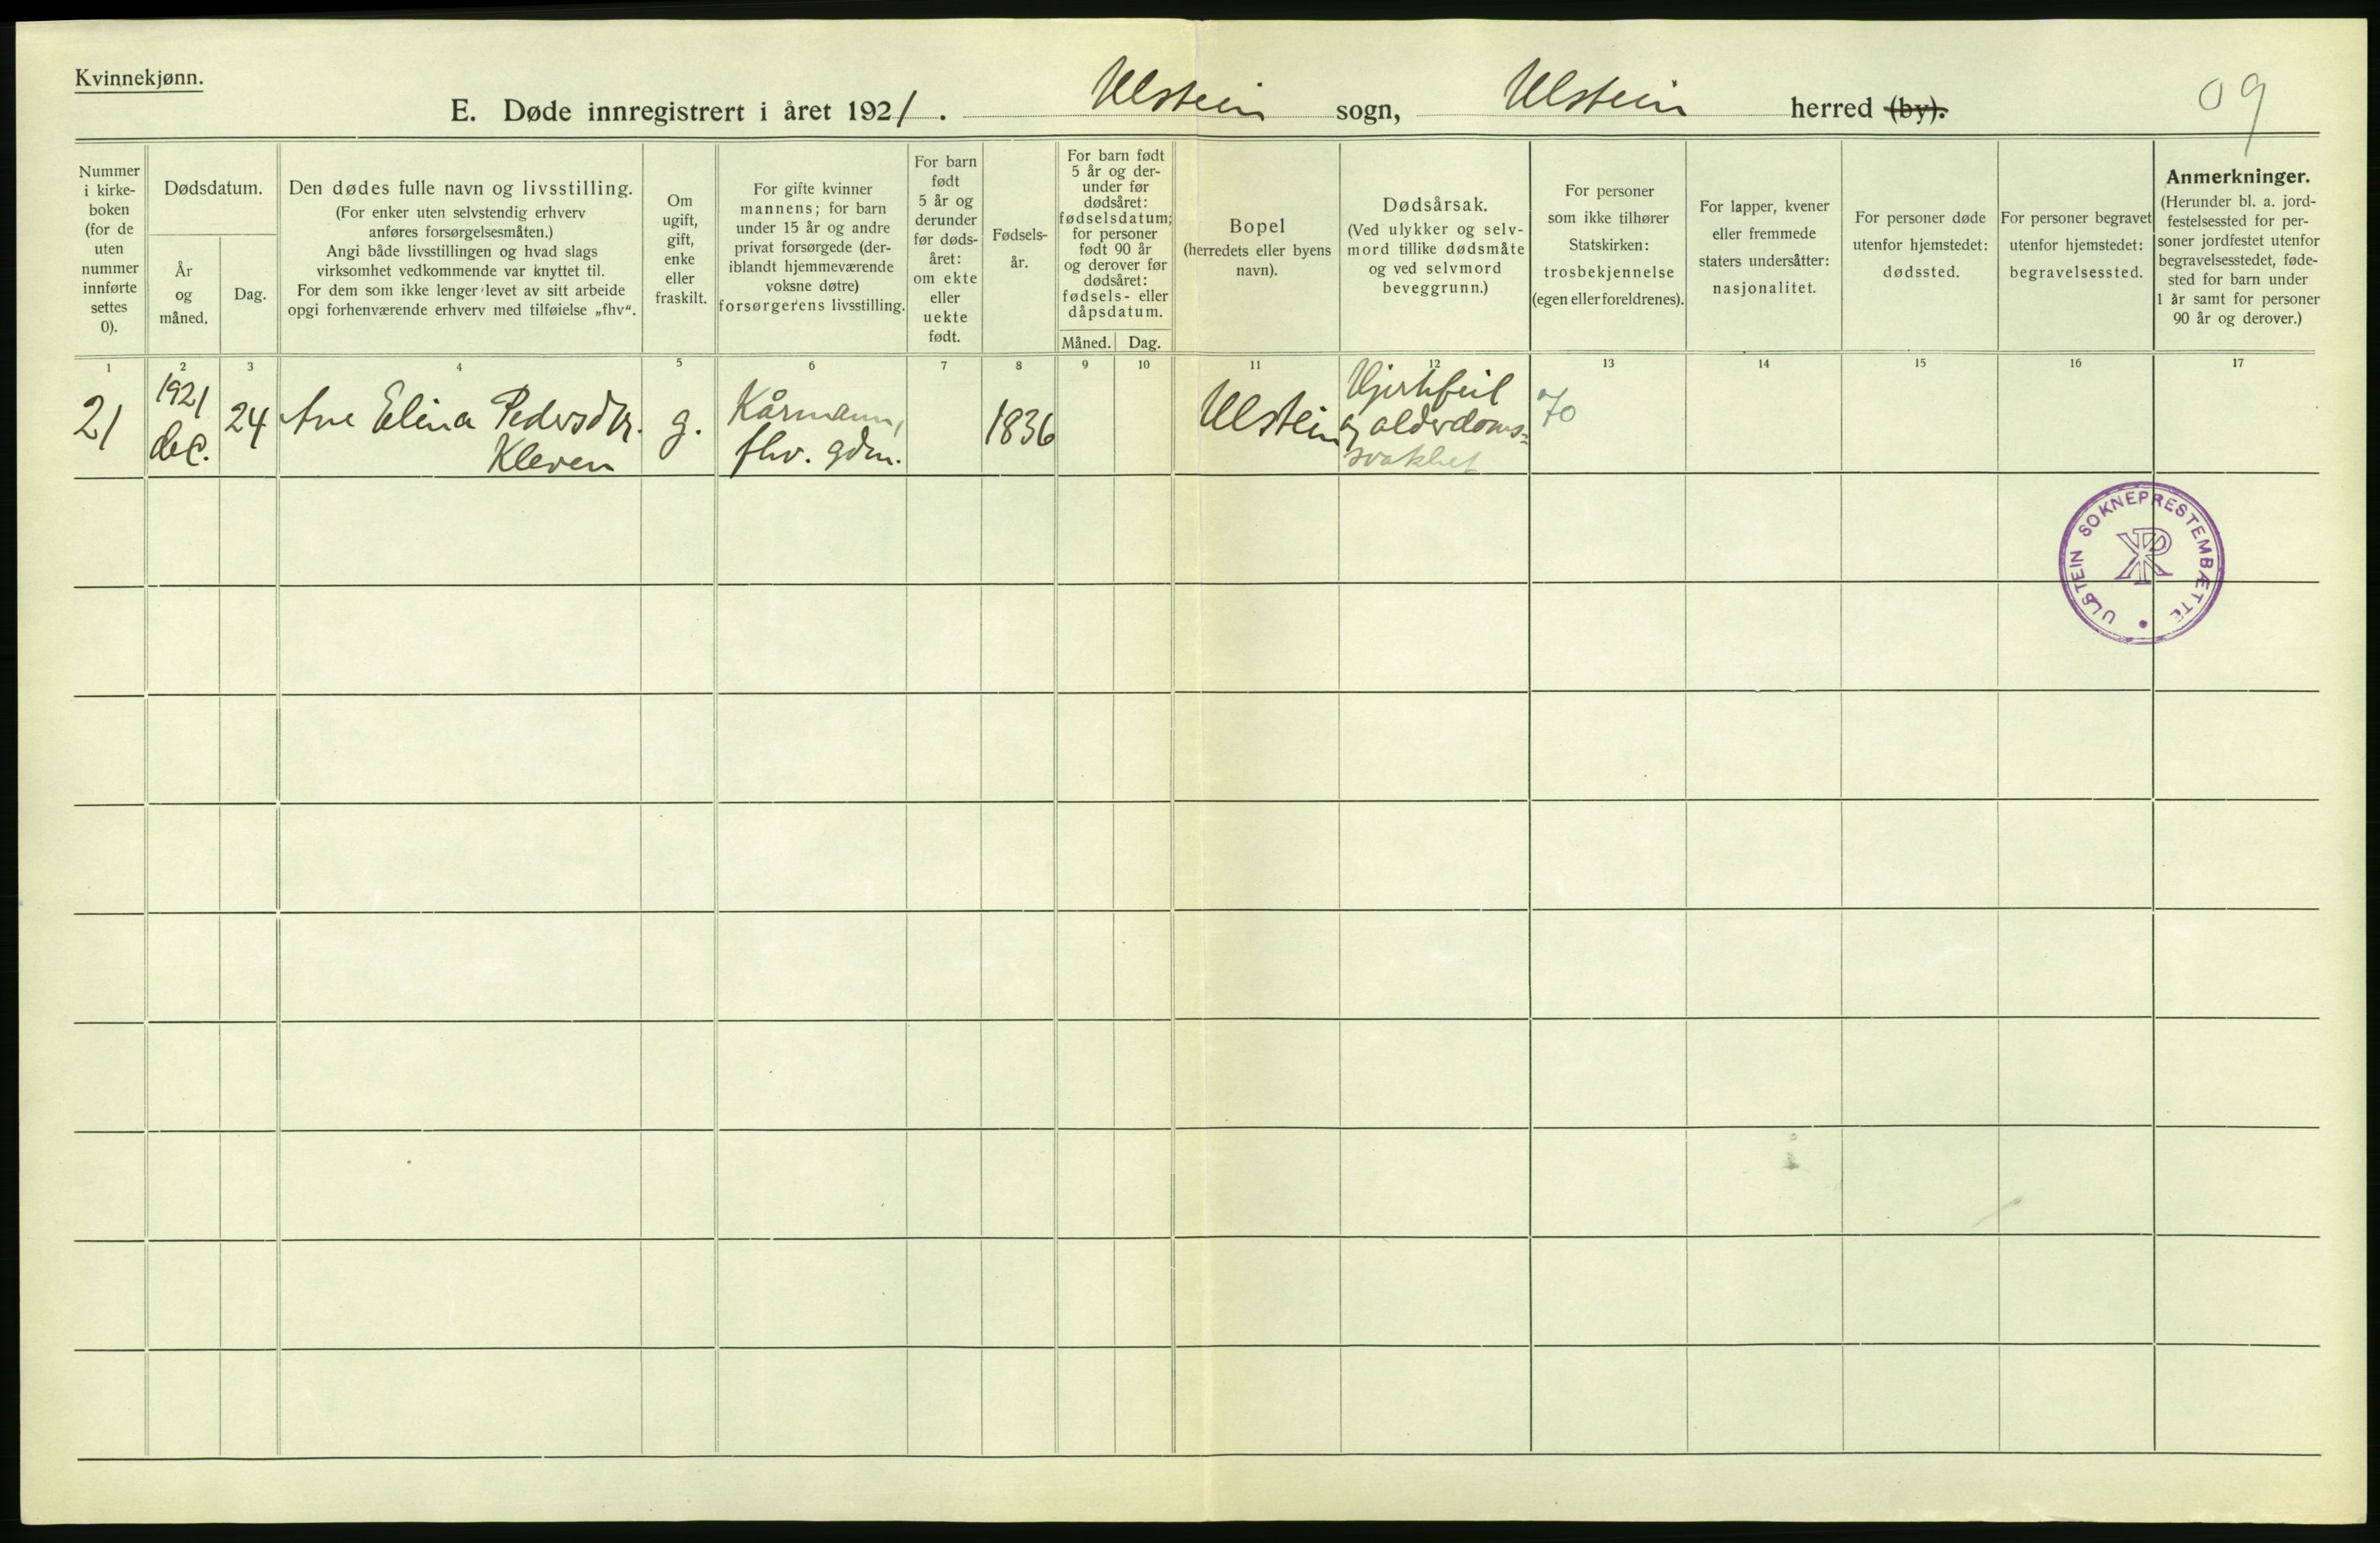 Kvinnekjønn.
E. Døde innregistrert i året 1921. Ulstein sogn, Ulstein herred (by).
09
Nummer
i kirke-
boken
(for de
uten
nummer
innførte
settes
0).
Dødsdatum.
År
og
måned.
Dag.
Den dødes fulle navn og livsstilling.
(For enker uten selvstendig erhverv
anføres forsørgelsesmåten.)
Angi både livsstillingen og hvad slags
virksomhet vedkommende var knyttet til.
For dem som ikke lenger levet av sitt arbeide
opgi forhenværende erhverv med tilføielse „fhv“.
Om
ugift,
gift,
enke
eller
fraskilt.
For gifte kvinner
mannens; for barn
under 15 år og andre
privat forsørgede (der-
iblandt hjemmeværende
voksne døtre)
forsørgerens livsstilling.
For barn
født
5 år og
derunder
før døds-
året:
om ekte
eller
uekte
født.
Fødsels-
år.
For barn født
5 år og der-
under før
dødsåret:
fødselsdatum;
for personer
født 90 år
og derover før
dødsåret:
fødsels- eller
dåpsdatum.
Måned. Dag.
Bopel
(herredets eller byens
navn).
Dødsårsak.
(Ved ulykker og selv-
mord tillike dødsmåte
og ved selvmord
beveggrunn.)
For personer
som ikke tilhører
Statskirken:
trosbekjennelse
(egen eller foreldrenes).
For lapper, kvener
eller fremmede
staters undersåtter:
nasjonalitet.
For personer døde
utenfor hjemstedet:
dødssted.
For personer begravet
utenfor hjemstedet:
begravelsessted.
Anmerkninger.
(Herunder bl. a. jord-
festelsessted for per-
soner jordfestet utenfor
begravelsesstedet, føde-
sted for barn under
1 år samt for personer
90 år og derover.)
1 2 3 4 5 6 7 8 9 10 11 12 13 14 15 16 17
21
1921
dec.
24
Ane Elina Pedersdtr.
Kleven
g.
Kårmann,
fhv. gdm.
1836
Ulstein
Hjertefeil
og alderdoms=
svakhet
70
ULSTEIN SOKNEPRESTEMBÆTTE